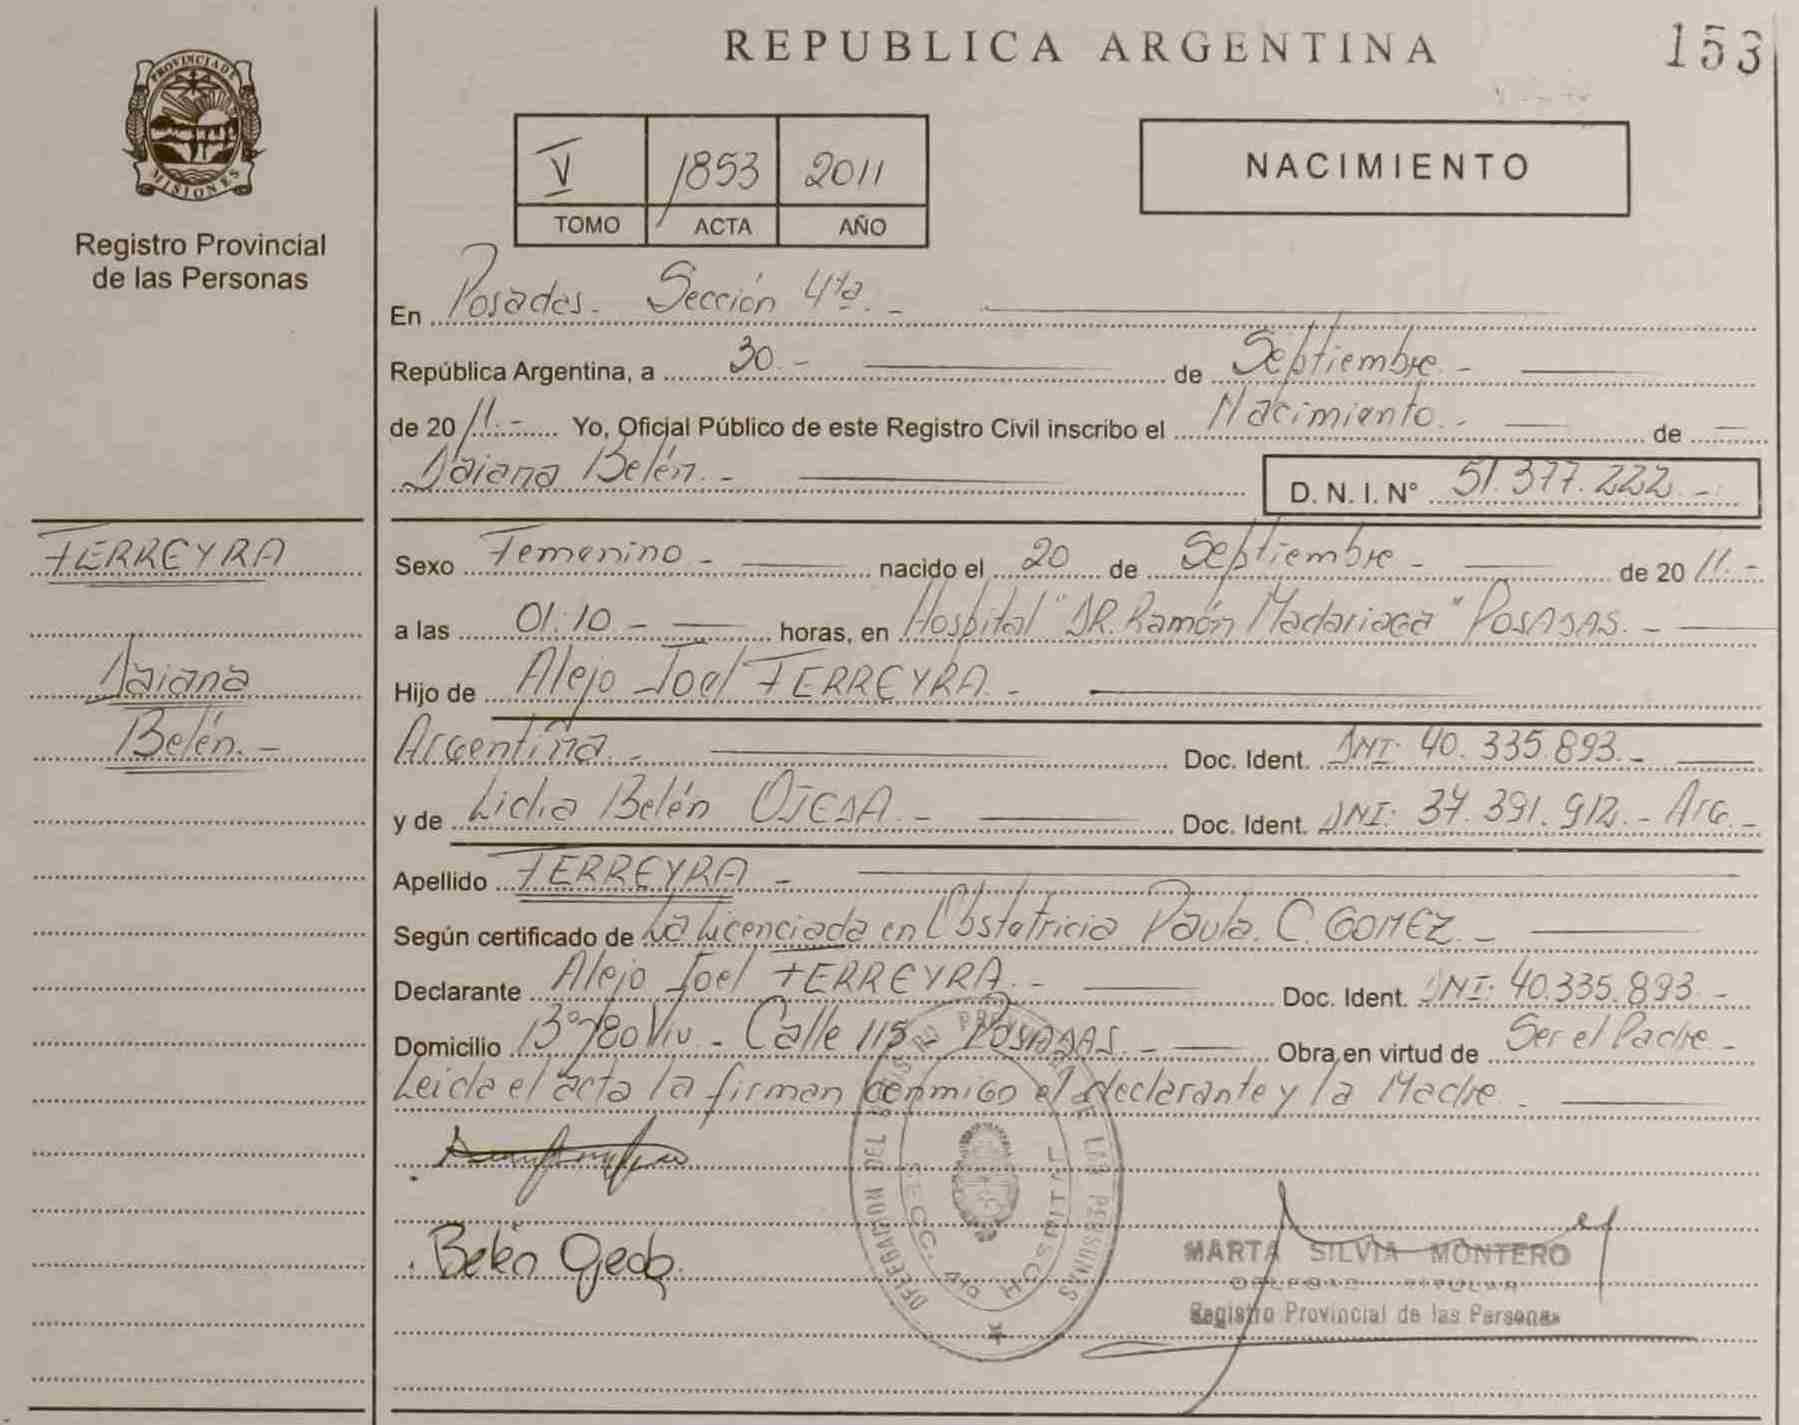 REPUBLICA ARGENTINA
153
PROVINCIA DE
MISIONES
Registro Provincial
de las Personas
V 1853 2011
TOMO ACTA AÑO
NACIMIENTO
En Posadas. Sección 4ta. -
República Argentina, a 30 - de Septiembre -
de 20 11.- Yo, Oficial Público de este Registro Civil inscribo el Nacimiento. - de -
Daiana Belén. -
D. N. I. N° 51.377.222 -
FERREYRA
Daiana
Belén. -
Sexo Femenino - nacido el 20 de Septiembre - de 20 11. -
a las 01:10 - horas, en Hospital "DR. Ramón Madariaga" POSADAS. -
Hijo de Alejo Joel FERREYRA -
Argentina. - Doc. Ident. DNI: 40.335.893. -
y de Lidia Belén OJEDA. - Doc. Ident. DNI: 37.391.912. - Arg. -
Apellido FERREYRA -
Según certificado de La Licenciada en Obstetricia Paula. C. GOMEZ. -
Declarante Alejo Joel FERREYRA. - Doc. Ident. DNI: 40.335.893. -
Domicilio B° 780 Viv - Calle 115 POSADAS. - Obra en virtud de Ser el Padre -
Leida el acta la firman conmigo el declarante y la Madre. -
Belén Ojeda
DELEGACION DEL REGISTRO PROVINCIAL DE LAS PERSONAS
SECC. 4ta HOSPITAL
MARTA SILVIA MONTERO
DELEGADA TITULAR
Registro Provincial de las Personas